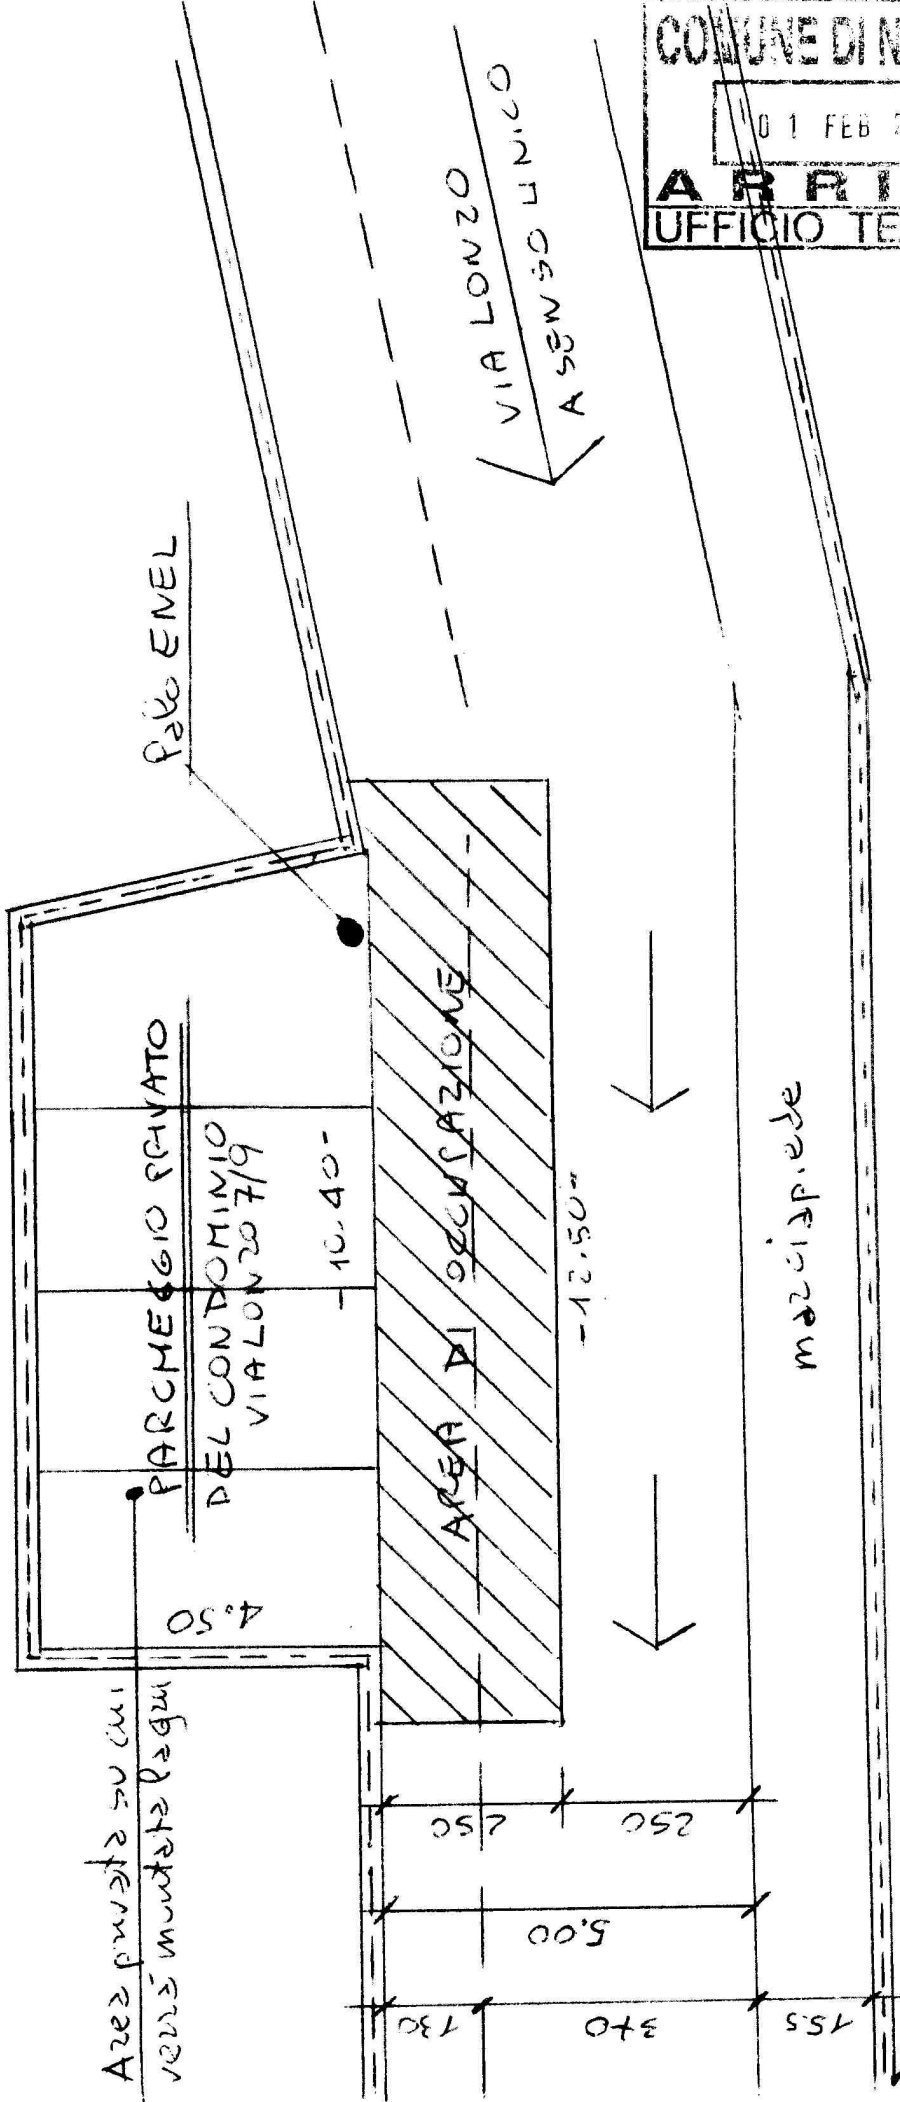 COMUNE DI N
01 FEB 2
ARRI
UFFICIO TE
VIA LONZO
A SENSO UNICO
Palo ENEL
PARCHEGGIO PRIVATO
DEL CONDOMINIO
VIA LONZO 7/9
-10.40-
4.50
AREA DI OCCUPAZIONE
-12.50-
marciapiede
Area privata su cui
verrà montata la gru
250
250
5.00
130
370
155